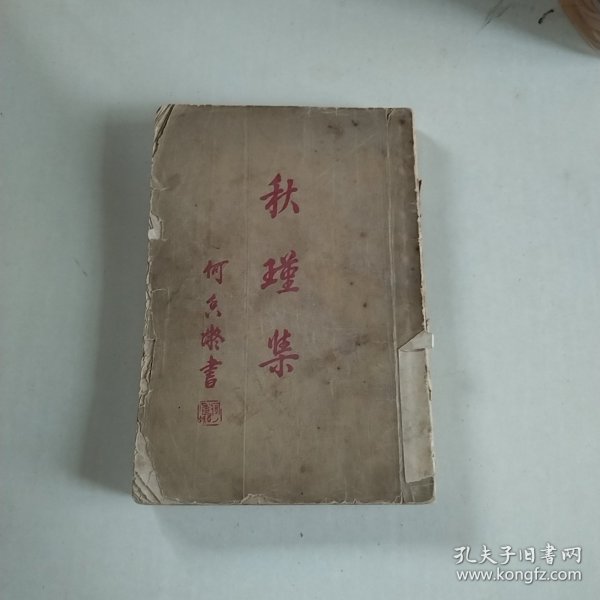 秋瑾集
何香凝書
孔夫子旧書网
www.kongfz.com